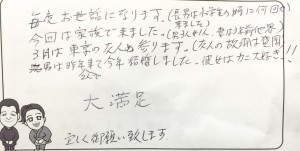 毎度お世話になります。(長男は小学生の時に何回も
来ました)
今回は家族で来ました。(男3人女1人、妻は3年前他界)
3月は東京の友人も参ります。(友人の故郷は豊岡!!
男は昨年まで今年結婚しました。彼女はカニ大好き!!)
大満足
宜しく御願い致します。